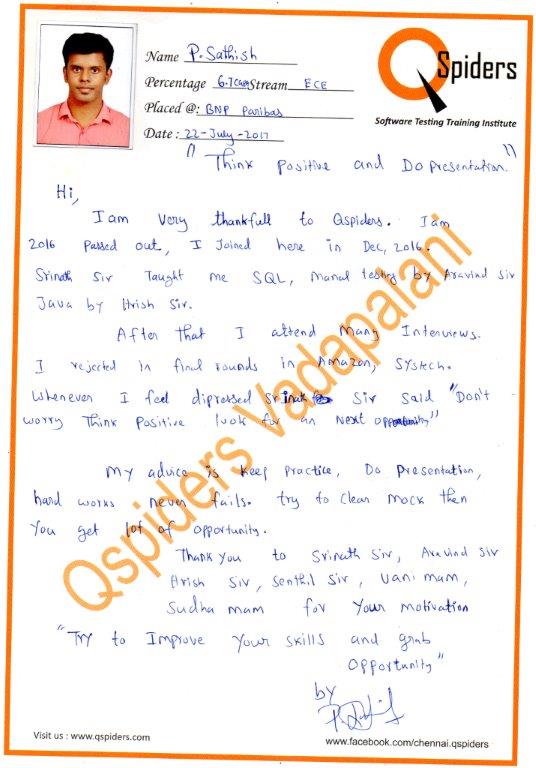 Name P. Sathish
Percentage 6.7 CGPA Stream ECE
Placed @: BNP Paribas
Date : 22-July-2017
QSpiders
Software Testing Training Institute
"Think positive and Do presentation."
Hi,
I am very thankfull to Qspiders. I am
2016 passed out, I Joined here in Dec, 2016.
Srinath sir Taught me SQL, manal testing by Aravind sir
Java by Hrish Sir.
After that I attend Many Interviews.
I rejected in final rounds in Amazon, Systech.
Whenever I feel dipressed Srinath Sir said "Don't
worry Think Positive look for an Next opportunity"
My advice is keep practice, Do Presentation,
hard works never fails. try to clear mock then
You get lot of opportunity.
Thank you to Srinath Sir, Aravind Sir
Hrish Sir, Senthil Sir, Vani mam,
Sudha mam for your motivation
"Try to Improve your skills and grab
opportunity"
by
Qspiders Vadapalani
Visit us : www.qspiders.com
www.facebook.com/chennai.qspiders